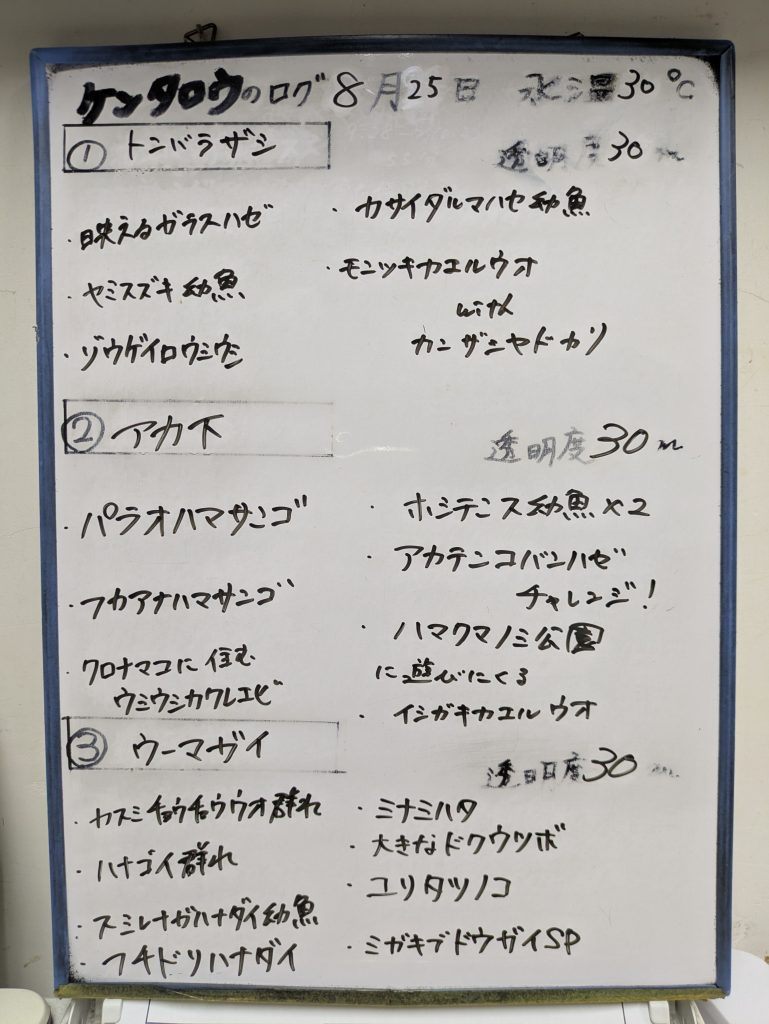 ケンタロウのログ 8月25日 水温30℃
① トンバラザシ
透明度30m
・映えるガラスハゼ
・ヤミスズキ幼魚
・ゾウゲイロウミウシ
・カサイダルマハゼ幼魚
・モンツキカエルウオ
with
カンザシヤドカリ
② アカ下
透明度30m
・パラオハマサンゴ
・フカアナハマサンゴ
・クロナマコに住む
ウミウシカクレエビ
・ホシテンス幼魚×2
・アカテンコバンハゼ
チャレンジ!
・ハマクマノミ公園
に遊びにくる
・イシガキカエルウオ
③ ウーマガイ
透明度30m
・カスミチョウチョウウオ群れ
・ハナゴイ群れ
・スミレナガハナダイ幼魚
・フチドリハナダイ
・ミナミハタ
・大きなドクウツボ
・ユリタツノコ
・ミガキブドウガイSP